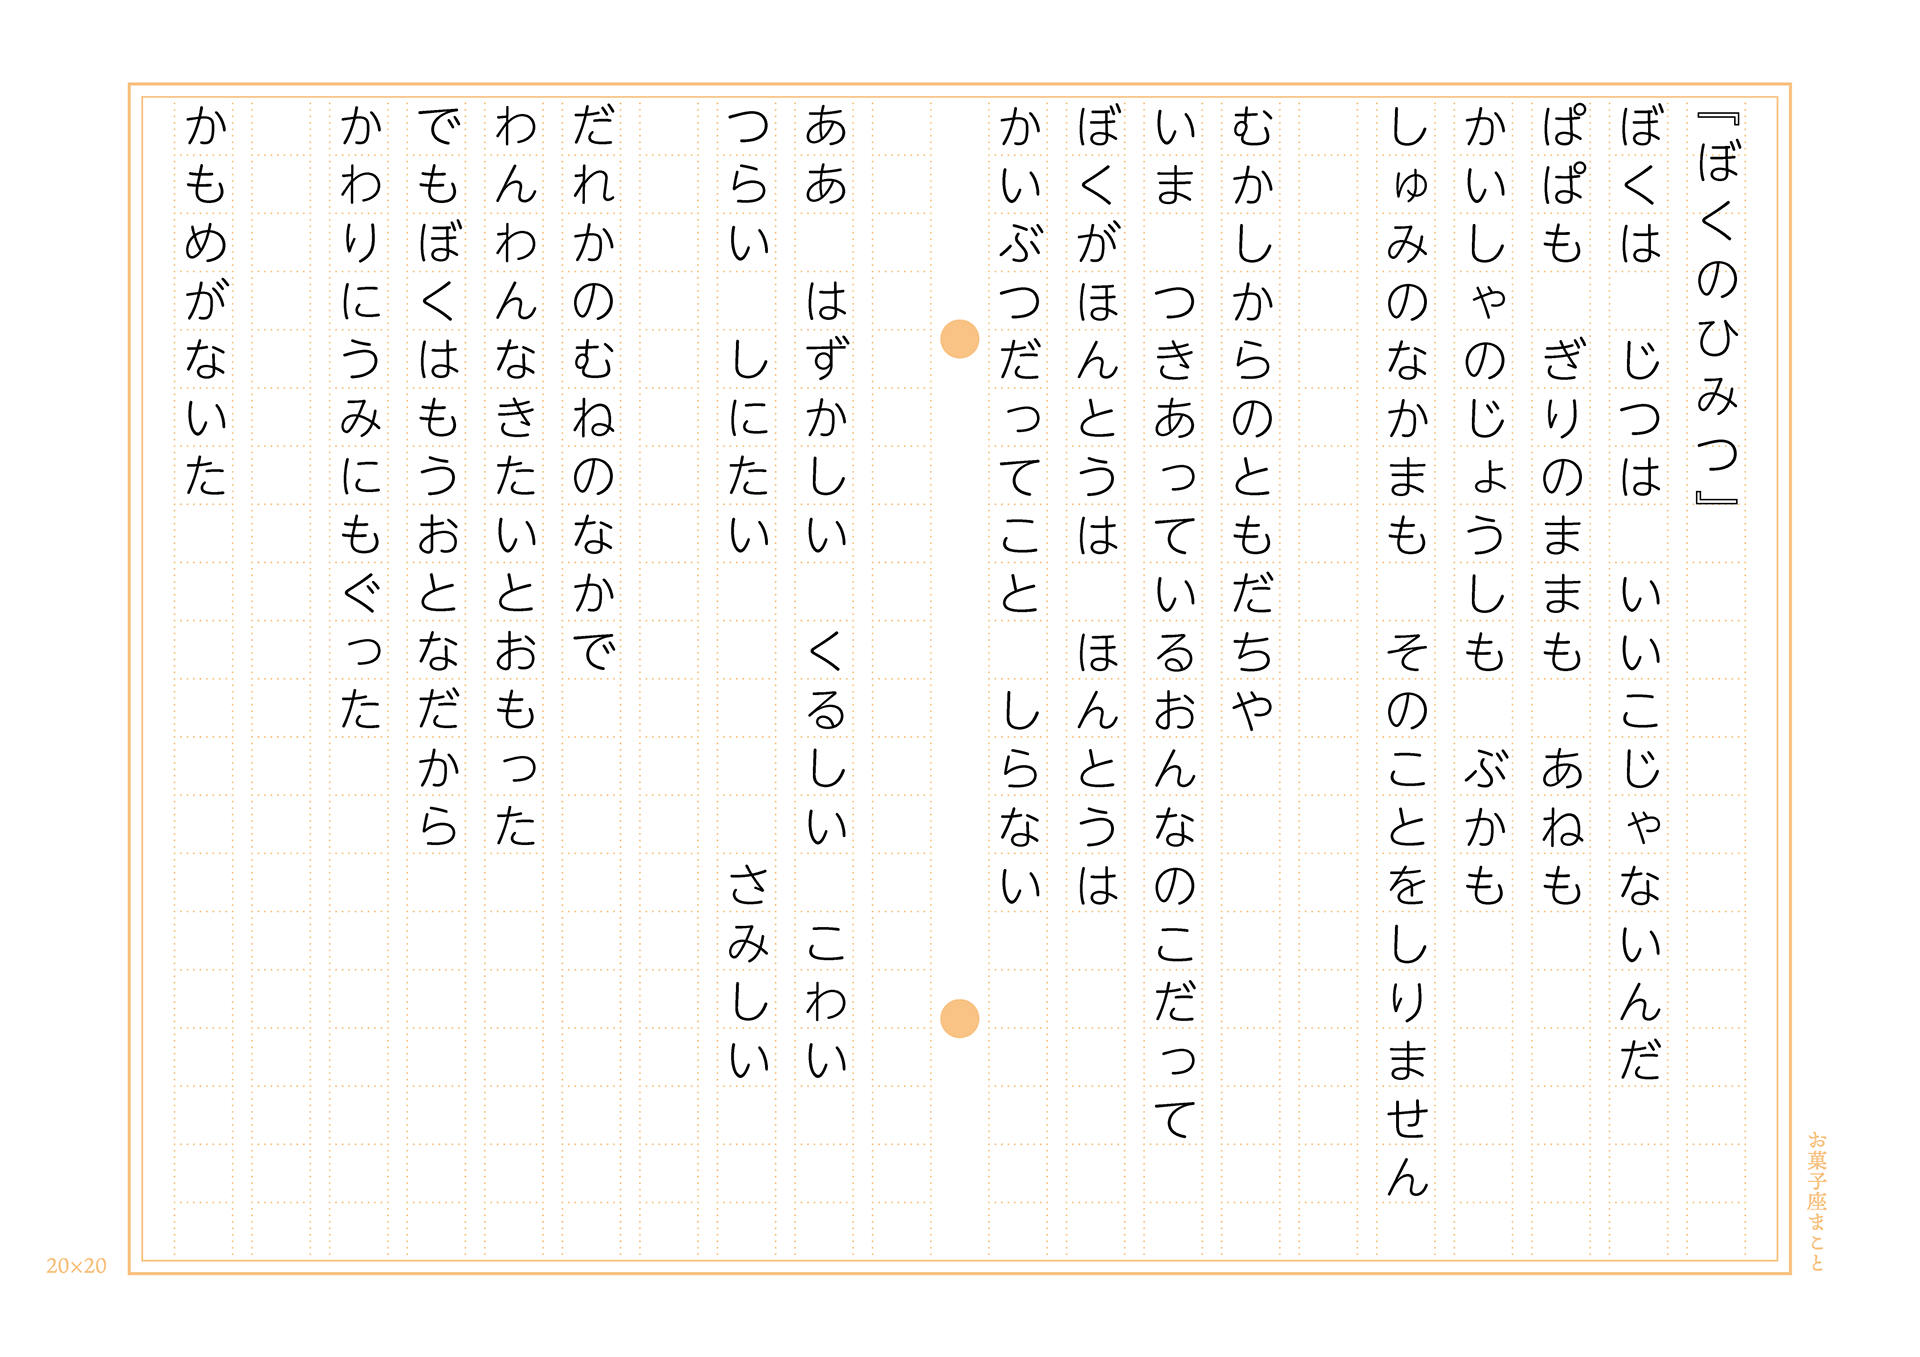 『ぼくのひみつ』
ぼくは　じつは　いいこじゃないんだ
ぱぱも　ぎりのままも　あねも
かいしゃのじょうしも　ぶかも
しゅみのなかまも　そのことをしりません
むかしからのともだちや
いま　つきあっているおんなのこだって
ぼくがほんとうは　ほんとうは
かいぶつだってこと　しらない
ああ　はずかしい　くるしい　こわい
つらい　しにたい　　　　　さみしい
だれかのむねのなかで
わんわんなきたいとおもった
でもぼくはもうおとなだから
かわりにうみにもぐった
かもめがないた
お菓子座まこと
20×20